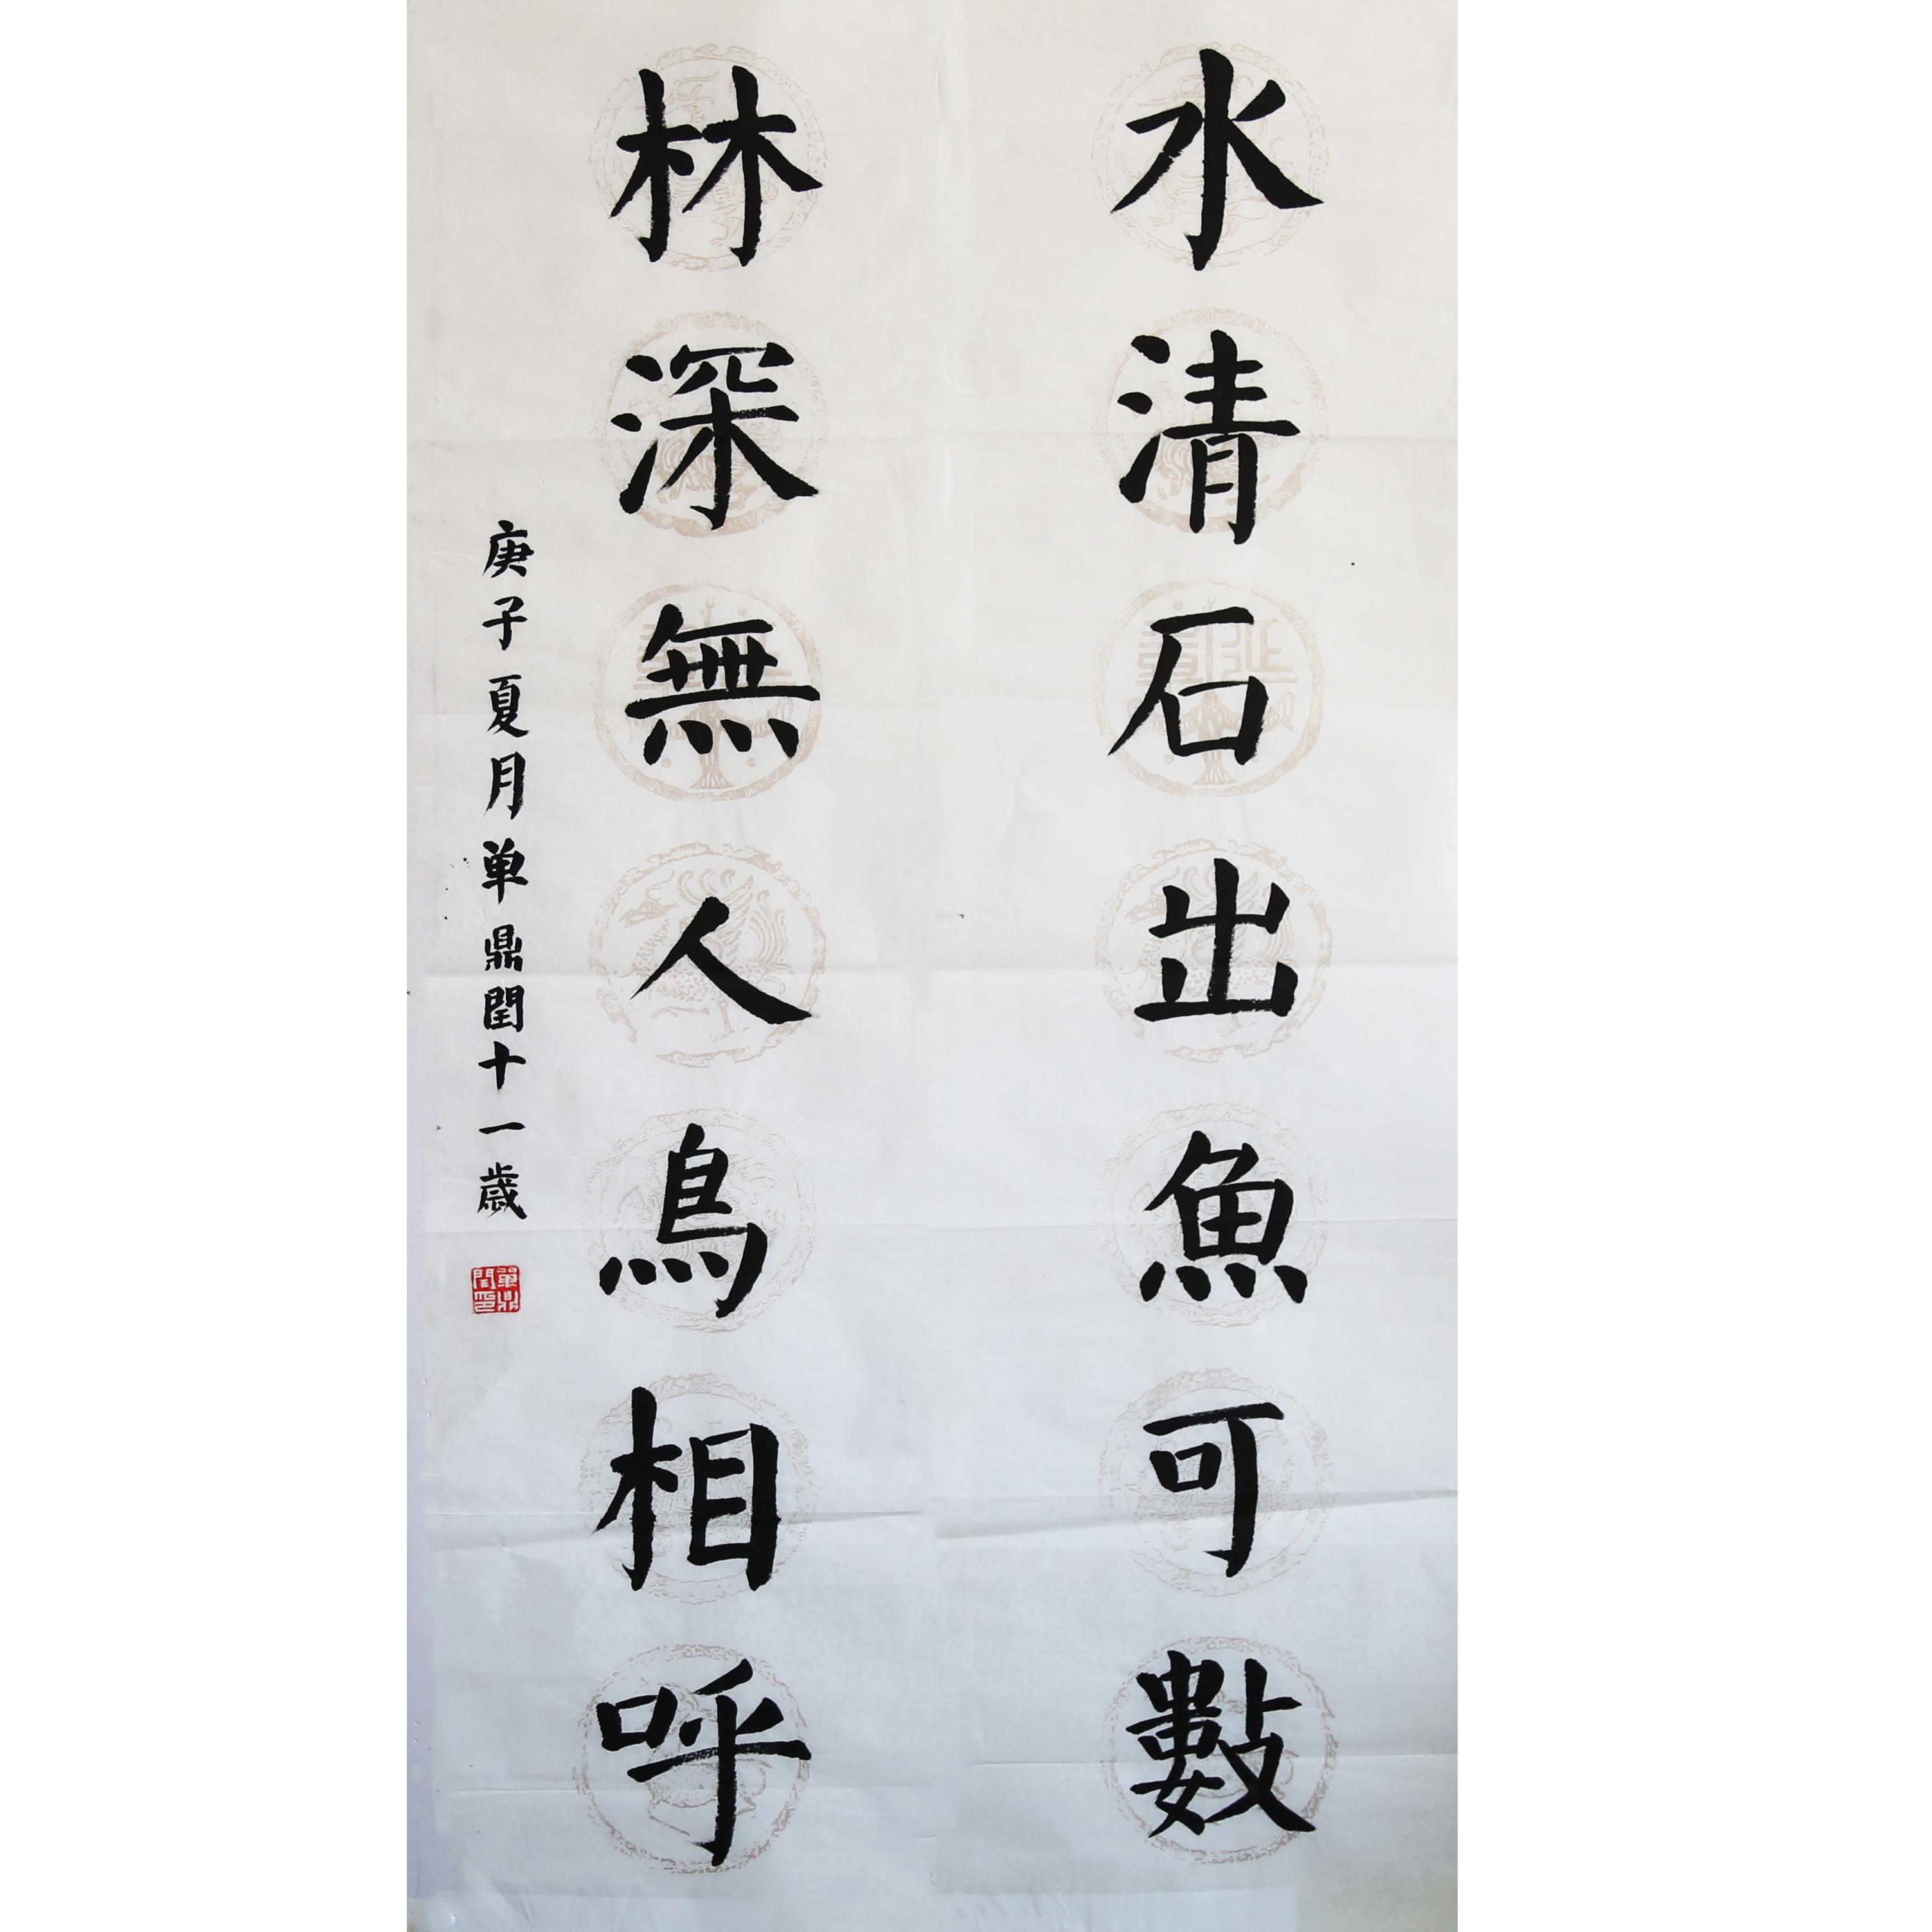 水清石出魚可數
林深無人鳥相呼
庚子夏月单鼎閏十一歲
單鼎閏印